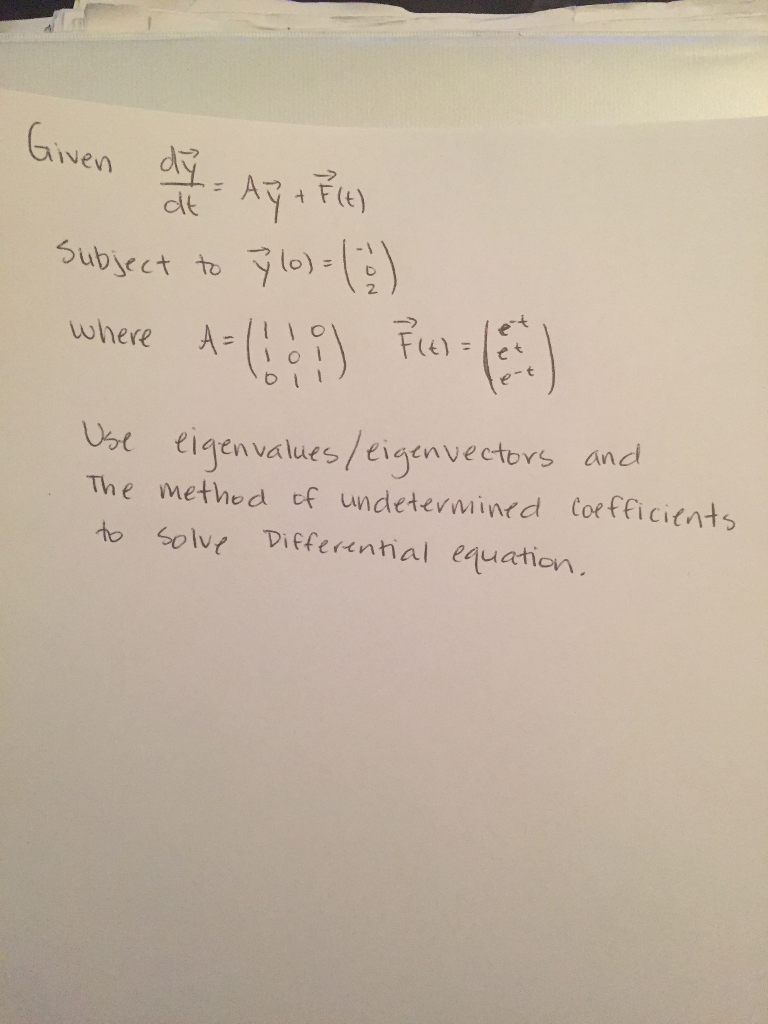 Given dy⃗/dt = Ay⃗ + F⃗(t)
Subject to y⃗(0) = (-1 0 2)
where A = (1 1 0 1 0 1 0 1 1) F⃗(t) = (e^-t e^t e^-t)
Use eigenvalues/eigenvectors and
The method of undetermined coefficients
to solve Differential equation.